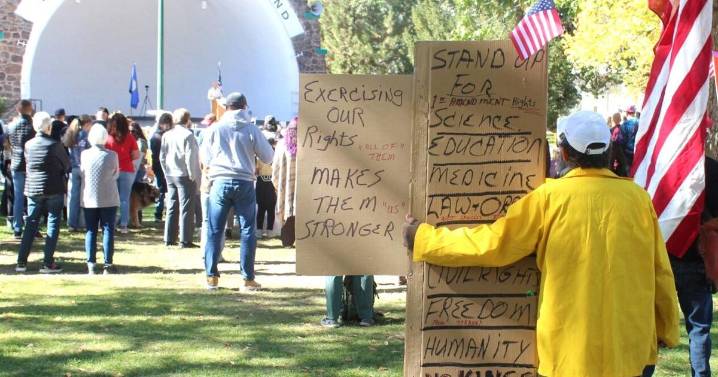 Exercising
OUR
Rights "ALL OF"
THEM
MAKES
THEM "US"
STRONGER
STAND UP
FOR
1ST AMENDMENT Rights
SCIENCE
EDUCATION
MEDICINE
LAW-OR
CIVIL RIGHT
FREEDOM
HUMANITY
NO KINGS